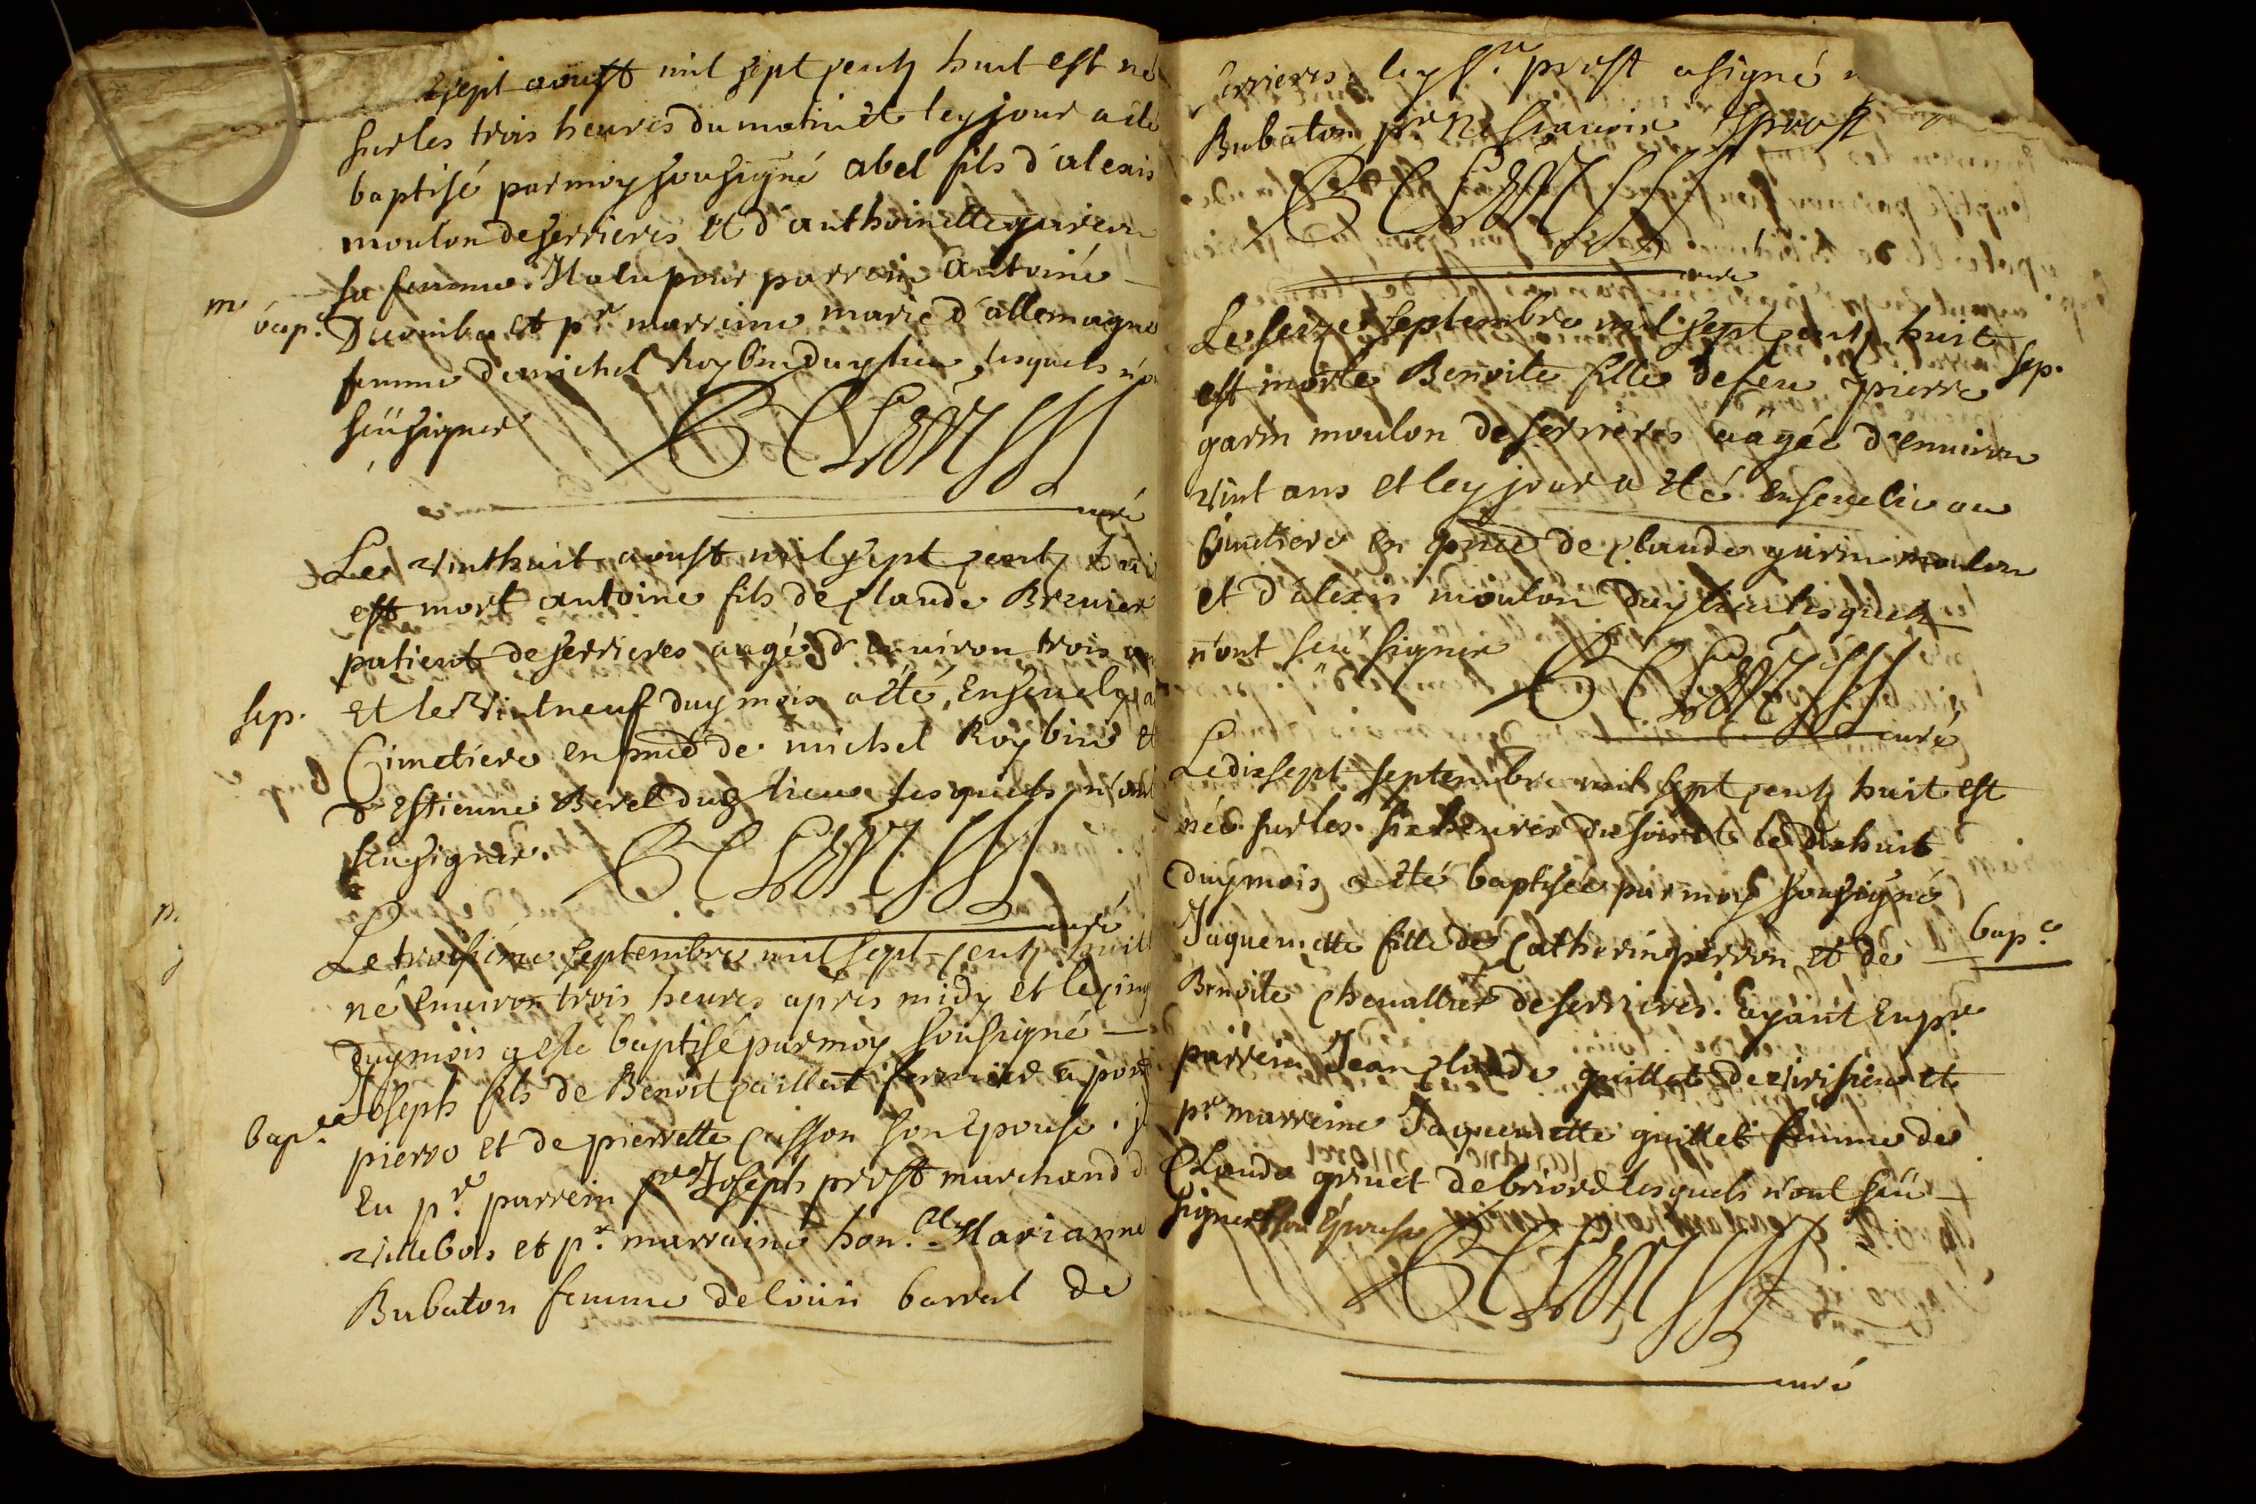 sept aoust mil sept centz huit est né
sur les trois heures du matin et ley jour a été
baptisé par moy sousigné abel fils d'alexis
moulon de serrieres et d'anthoinette
sa femme. Il a eu pour parrein antoine
Ducomba et pr. marreine marie d'allemagne
bap.
femme de michel Roybin duy lieu, lesquels n'o
sceu signer
curé
Le vinthuit aoust mil sept centz huit
est mort antoine fils de Claude Bruvier
patient de serrieres aagé d'environ trois an
et le vintneuf duy mois a été, Ensevely a
sep.
Cimetiere en pnce de michel Roybin et
d'Estienne Berel duy lieu lesquels n'ont
sceu signer.
curé
Le troisiéme septembre mil sept centz huit
né Environ trois heures apres midy et le cinq
duy mois a esté baptisé par moy sousigné
Joseph fils de Benoit Caillat fermier a port
bap.
pierro et de pierrette Cusson son Epouse.
Eu pr. parrein Joseph prost marchand d
villebois et pr. marraine hon.ble Marianne
Bubaton femme de loüis barral de
serrieres. ley Sr. prost a signé
Bubaton pr. ne sçavoir Jprost
curé
Le seize septembre mil sept centz huit
sep.
est morte Benoite fille de feu pierre
garin moulon de serrieres aagée d'environ
vint ans et ley jour a été ensevelie au
Cimetiere en pnce de Claude garin moulon
et d'alexis moulon duy lieu lesquels
n'ont sceu signer
curé
Le dixsept septembre mil sept centz huit est
née sur les six heures du soir et le dixhuit
duy mois a été baptisée par moy sousigné
Jaquemette fille de Catherin perron et de
bap.
Benoite Chevallier de serrieres. Ayant Eu pr.
parrein Jean Claude guillet de virisieu et
pr. marreine Jaquemette guillet femme de
Claude gruet de briord lesquels n'ont sceu
signer son Epouse
curé